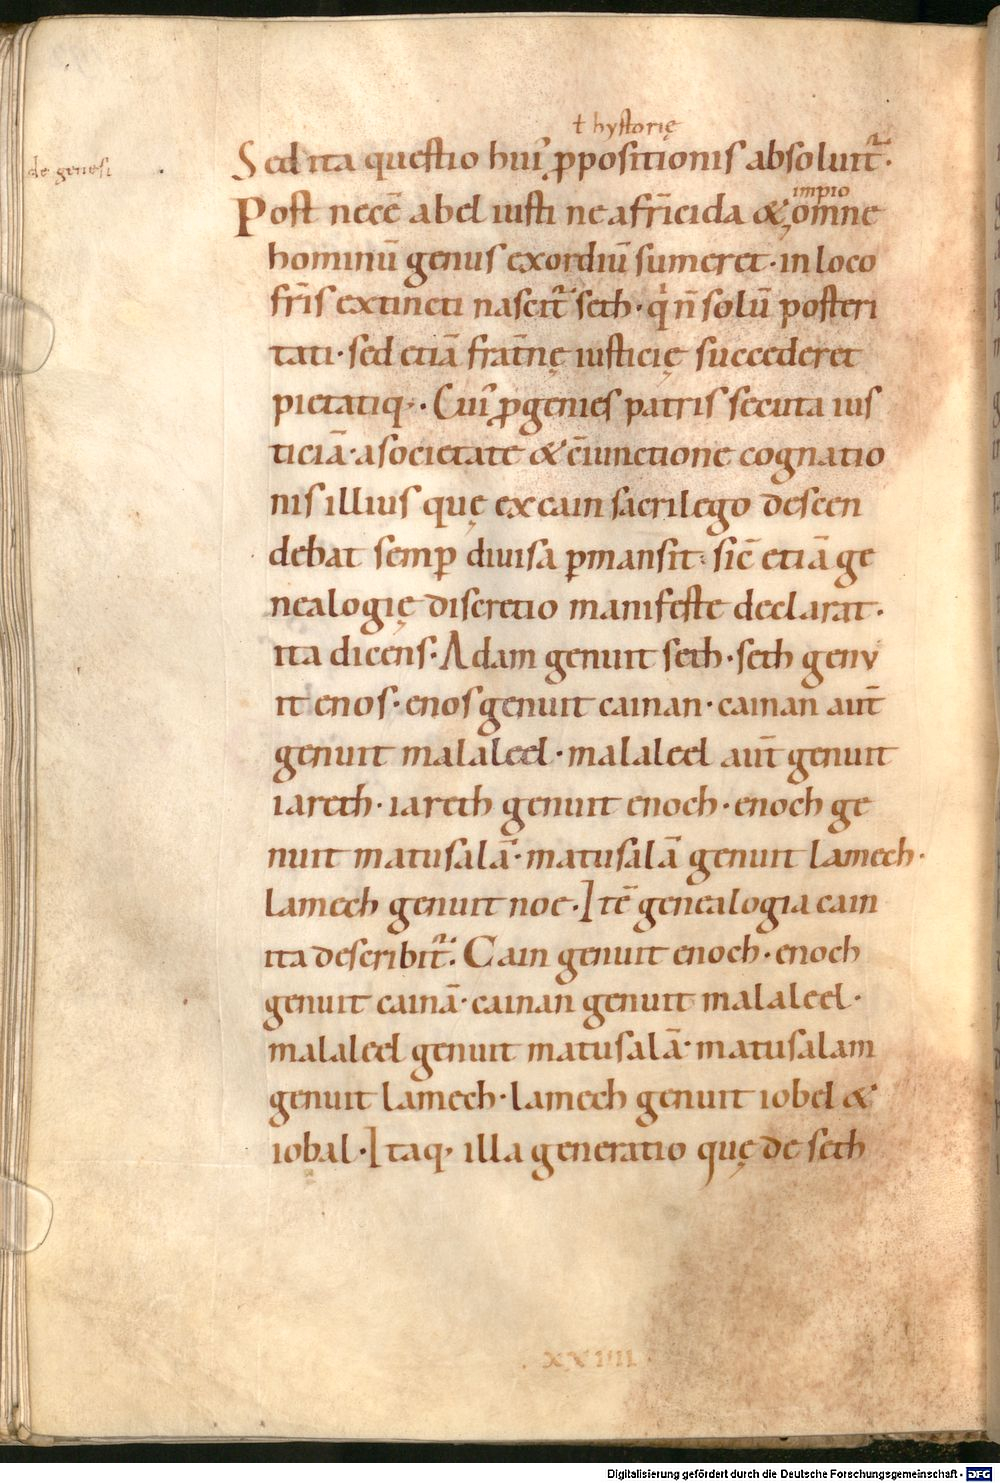 ł hystorię
de genesi
Sed ita questio hui᷒ ꝓpositionis absoluit᷑.
impio
Post necē abel iusti ne afr̄icida & omne
hominū genus exordiū sumeret· in loco
fr̄is extincti nascit᷑ seth· q̇ n̄ solū posteri
tati· sed etiā frat̄nę iusticię succederet
pietatiq;· Cui᷒ ꝓgenies patris secuta ius
ticiā· a societate & c̄iunctione cognatio
nis illius quę ex cain sacrilego descen
debat semꝑ divisa ꝑmansit· sic̄ etiā ge
nealogię discretio manifeste declarat·
ita dicens· Adam genuit seth· seth genu
it enos· enos genuit cainan· cainan aut̄
genuit malaleel· malaleel aut̄ genuit
iareth· iareth genuit enoch· enoch ge
nuit matusalā· matusalā genuit lamech·
lamech genuit noe· Itē genealogia cain
ita describit᷑. Cain genuit enoch· enoch
genuit cainā· cainan genuit malaleel·
malaleel genuit matusalā· matusalam
genuit lamech· lamech genuit iobel &
iobal· Itaq; illa generatio quę de seth
·XXIIII·
Digitalisierung gefördert durch die Deutsche Forschungsgemeinschaft - DFG